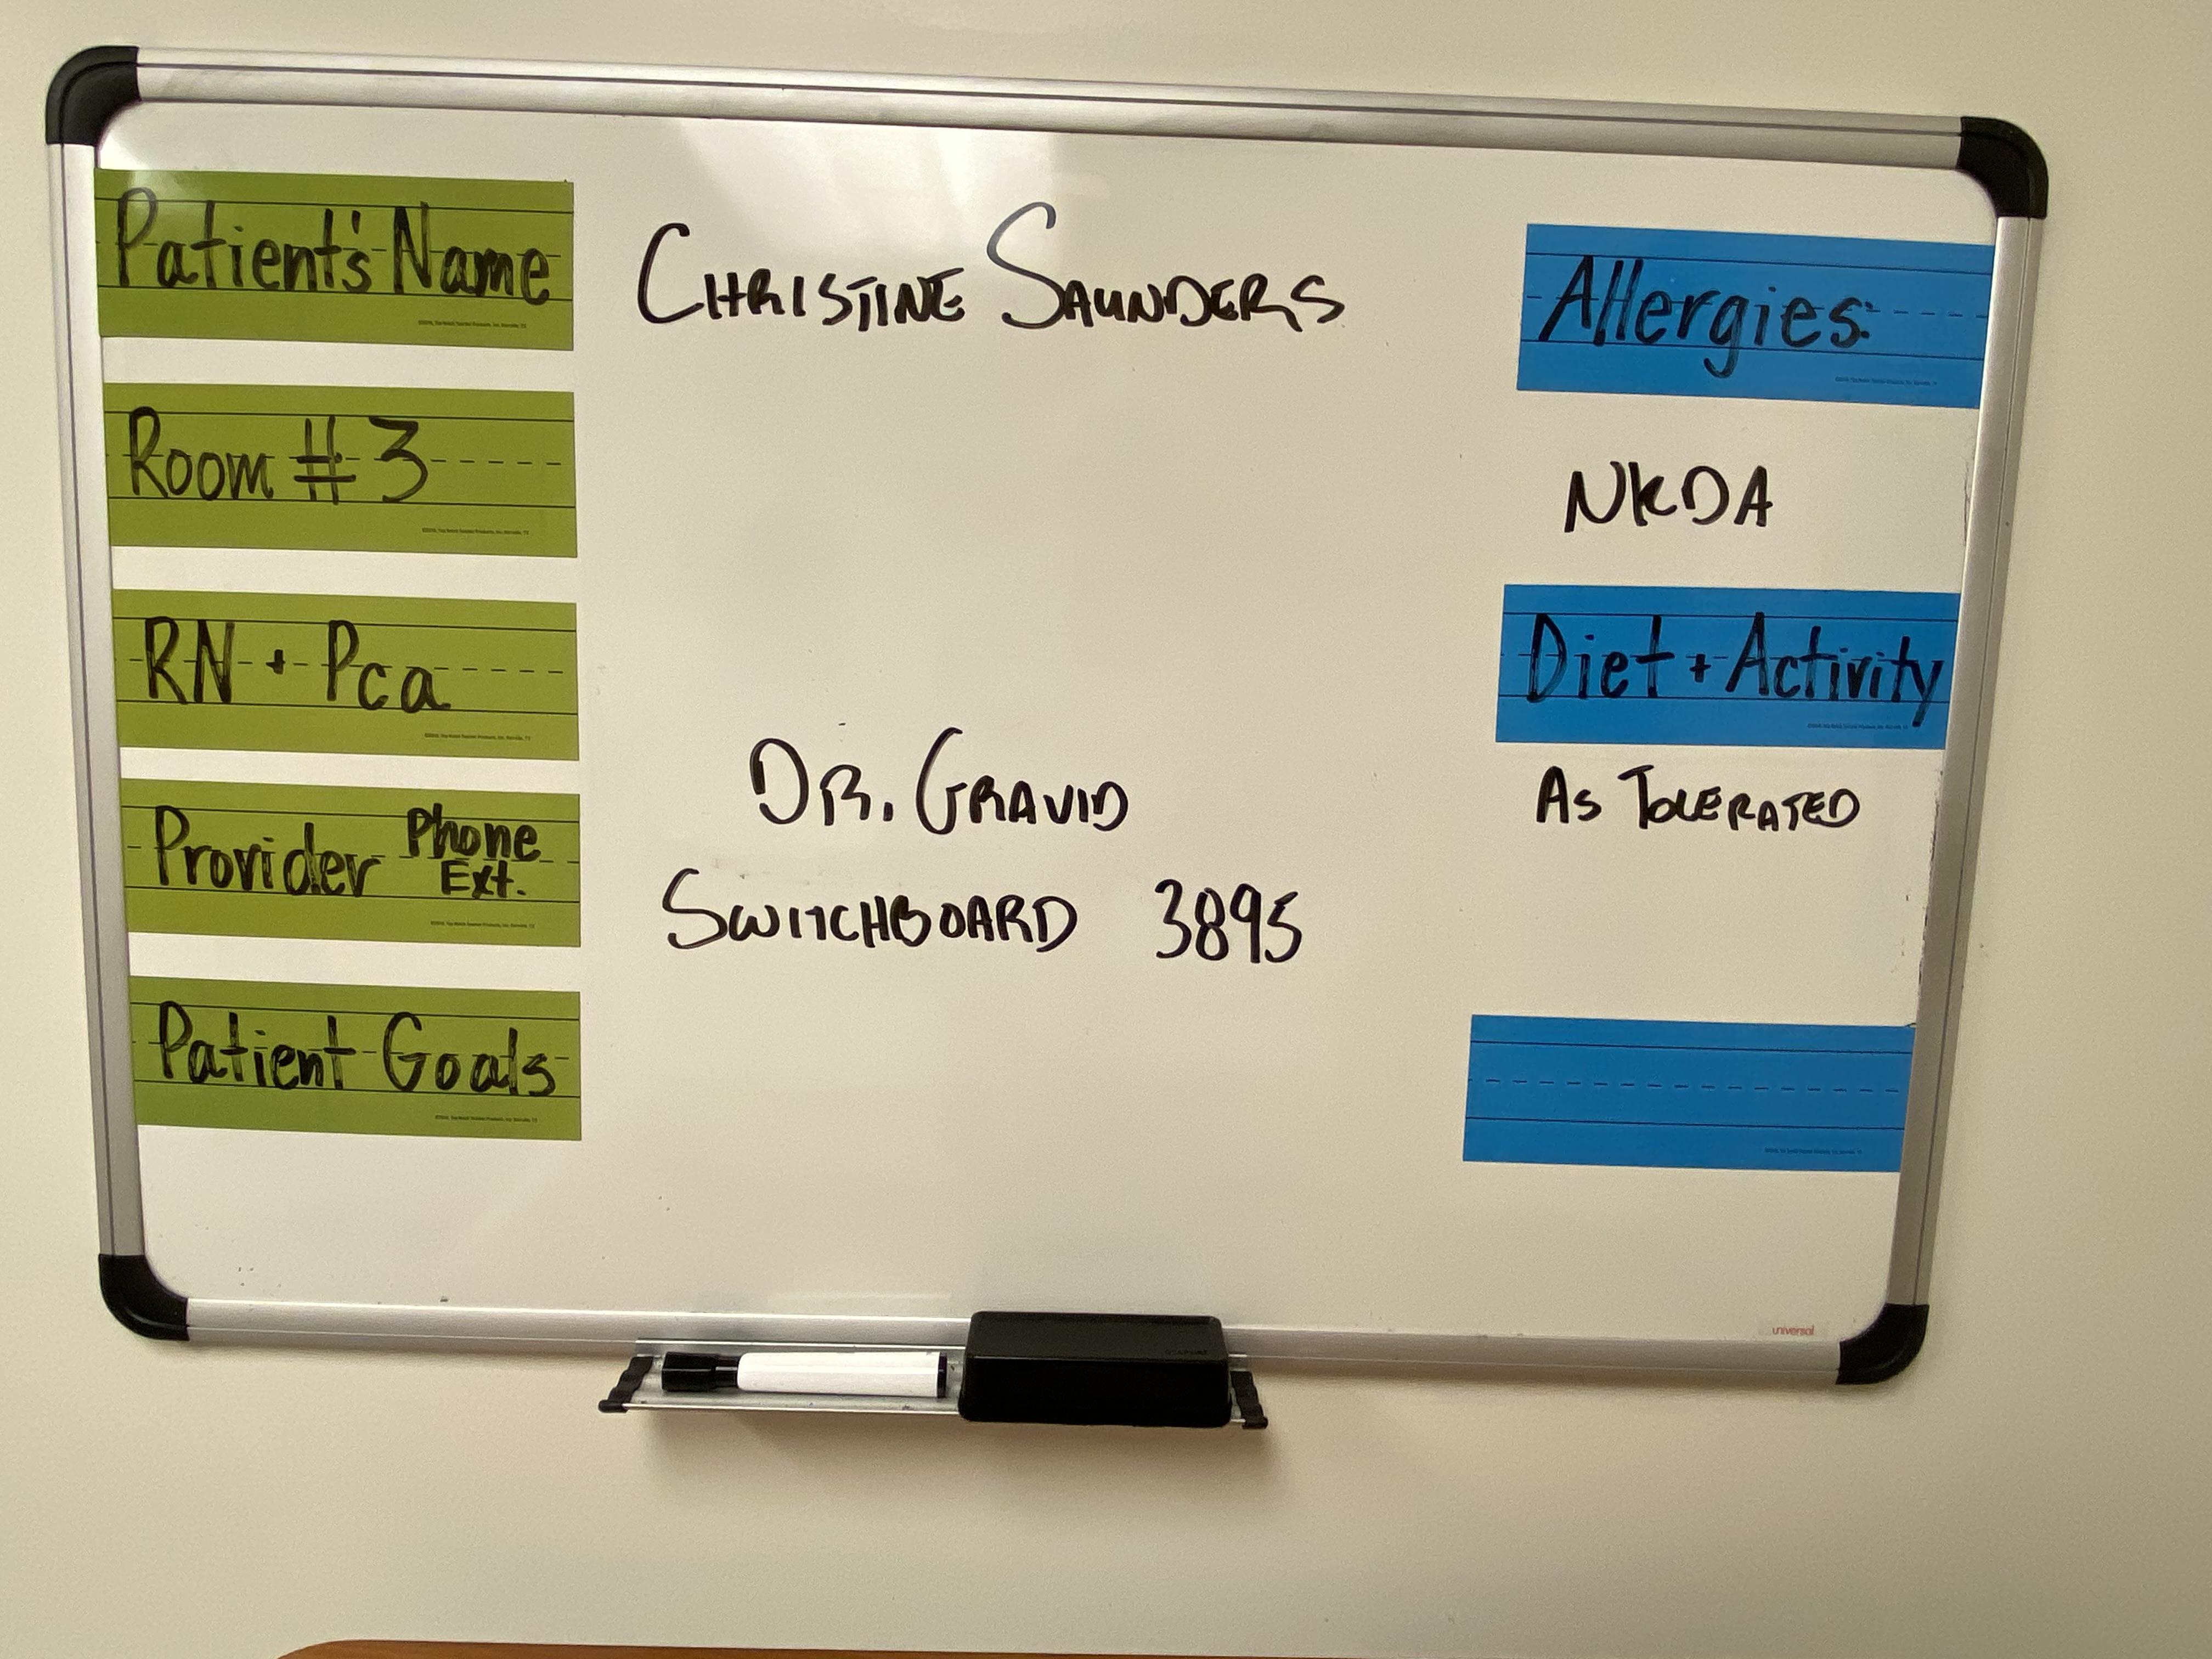 Patient's Name
CHRISTINE SAUNDERS
Room # 3
RN + Pca
Provider Phone Ext.
DR. GRAVID
SWITCHBOARD 3895
Patient Goals
Allergies:
NKDA
Diet + Activity
AS TOLERATED
universal